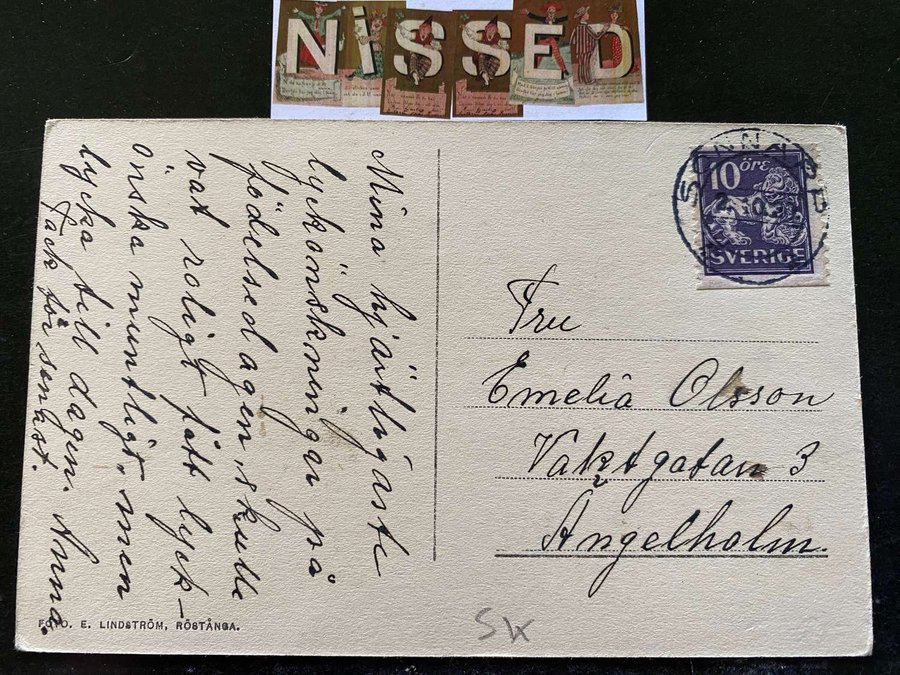 NISSED
Mina hjärtligaste
lyckönskningar på
födelsedagen, skulle
vat roligt fått lyck-
önska muntligt, men
lycka till dagen. Anna.
Tack för senast.
10 ÖRE
SVERIGE
Fru
Emelia Olsson
Vaktgatan 3
Ängelholm.
FOTO. E. LINDSTRÖM, RÖSTÅNGA.